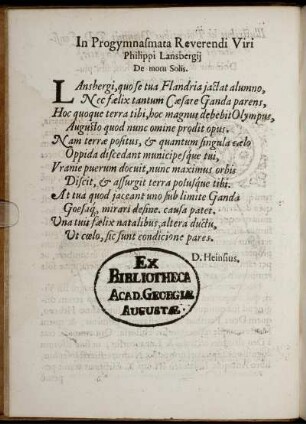 In Progymnasmata Reverendi Viri
Philippi Lansbergij
De motu Solis.
LAnsbergi, quo se tua Flandria jactat alumno,
Nec fælix tantum Cæsare Ganda parens,
Hoc quoque terra tibi, hoc magnus debebit Olympus,
Augusto quod nunc omine prodit opus.
Nam terræ positus, & quantum singula cælo
Oppida discedant municipesque tui,
Vranie puerum docuit, nunc maximus orbis
Discit, & assurgit terra polusque tibi.
At tua quod jaceant uno sub limite Ganda
Goesaq, mirari desine. causa patet.
Una tuis fælix natalibus, altera ductu,
Ut cœlo, sic sunt condicione pares.
D. Heinsius.
EX
BIBLIOTHECA
ACAD. GEORGIÆ
AUGUSTÆ.